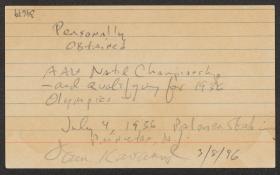 Personally
Obtained
AAU Nat'l Championship
- and qualifying for 1936
Olympics -
July 4, 1936 Palmer Stadium
Princeton, N.J.
3/8/96